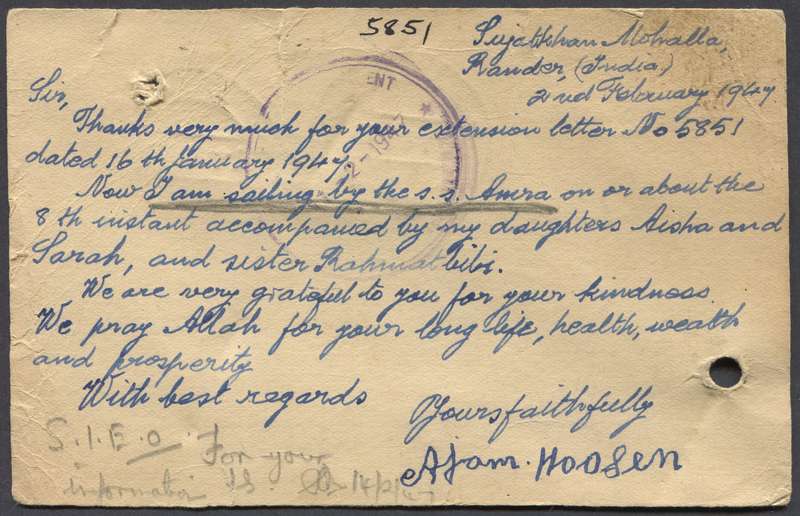 5851
Sujatkhan Mohalla,
Rander, (India)
2nd February 1947
Sir,
Thanks very much for your extension letter No 5851
dated 16th January 1947.
Now I am sailing by the s.s. Amra on or about the
8th instant accompanied by my daughters Aisha and
Sarah, and sister Rahmat bibi.
We are very grateful to you for your kindness.
We pray Allah for your long life, health, wealth
and prosperity
With best regards
Yours faithfully
Ajam. Hoosen
ENT
2-1947
S.I.E.O.
For your
information
14/2/47